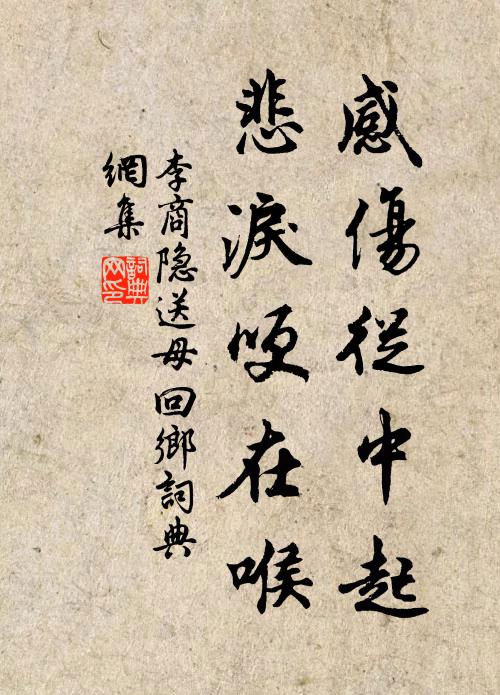 感傷從中起
悲淚哽在喉
李商隐送母回鄉詞典
網集
詞典網印